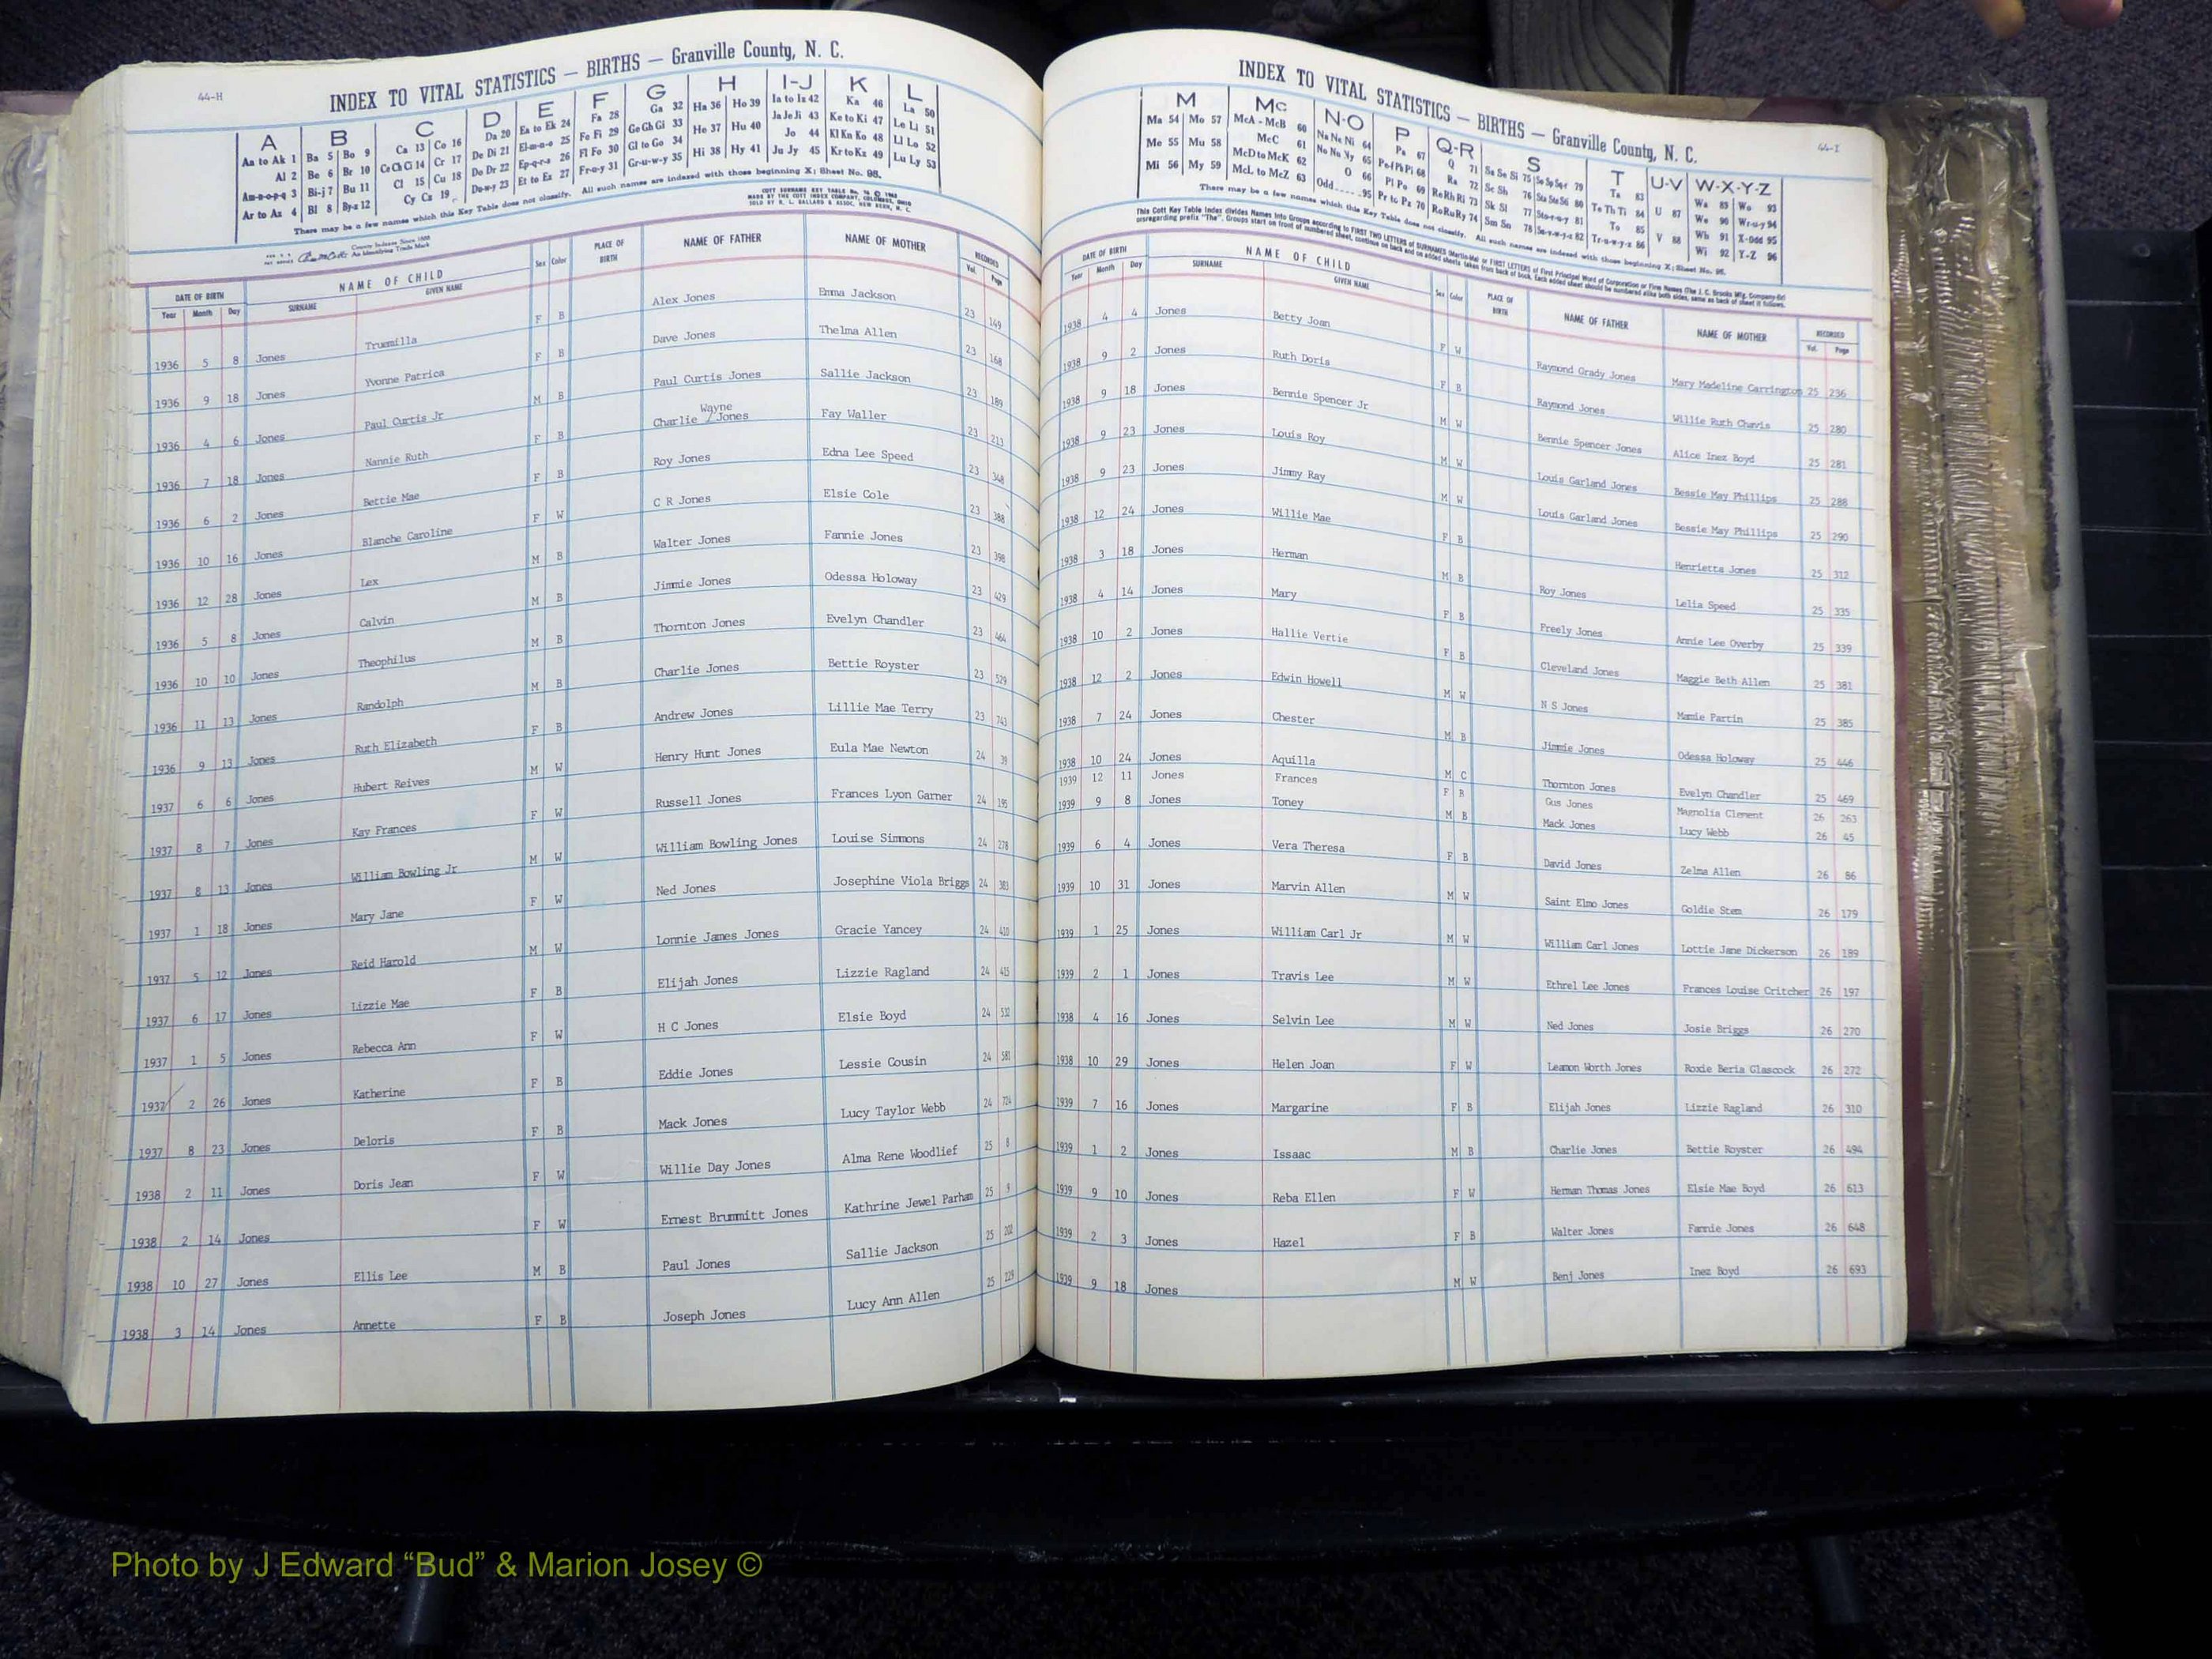 44-H
INDEX TO VITAL STATISTICS — BIRTHS — Granville County, N. C.
A B C D E F G H I-J K L
Aa to Ak 1 Ba 5 Bo 9 Ca 13 Co 16 Da 20 Ea to Ek 24 Fa 28 Ga 32 Ha 36 Ho 39 Ia to Iz 42 Ka 46 La 50
Al 2 Be 6 Br 10 Ce Ch Ci 14 Cr 17 De Di 21 El-m-n-o 25 Fe Fi 29 Ge Gh Gi 33 He 37 Hu 40 Ja Je Ji 43 Ke to Ki 47 Le Li 51
Am-n-o-p-q 3 Bi-j 7 Bu 11 Cl 15 Cu 18 Do Dr 22 Ep-q-r-s 26 Fl Fo 30 Gl to Go 34 Hi 38 Hy 41 Jo 44 Kl Kn Ko 48 Ll Lo 52
Ar to Az 4 Bl 8 By-z 12 Cy Cz 19 Du-w-y 23 Et to Ez 27 Fr-u-y 31 Gr-u-w-y 35 Ju Jy 45 Kr to Kz 49 Lu Ly 53
There may be a few names which this Key Table does not classify. All such names are indexed with those beginning X; Sheet No. 96.
DATE OF BIRTH NAME OF CHILD Sex Color PLACE OF BIRTH NAME OF FATHER NAME OF MOTHER RECORDED
Year Month Day SURNAME GIVEN NAME Vol. Page
1936 5 8 Jones Truemilla F B Alex Jones Emma Jackson 23 149
1936 9 18 Jones Yvonne Patrica F B Dave Jones Thelma Allen 23 168
1936 4 6 Jones Paul Curtis Jr M B Paul Curtis Jones Sallie Jackson 23 189
1936 7 18 Jones Nannie Ruth F B Charlie Wayne Jones Fay Waller 23 213
1936 6 2 Jones Bettie Mae F B Roy Jones Edna Lee Speed 23 348
1936 10 16 Jones Blanche Caroline F W C R Jones Elsie Cole 23 388
1936 12 28 Jones Lex M B Walter Jones Fannie Jones 23 398
1936 5 8 Jones Calvin M B Jimmie Jones Odessa Holoway 23 429
1936 10 10 Jones Theophilus M B Thornton Jones Evelyn Chandler 23 464
1936 11 13 Jones Randolph M B Charlie Jones Bettie Royster 23 529
1936 9 13 Jones Ruth Elizabeth F B Andrew Jones Lillie Mae Terry 23 743
1937 6 6 Jones Hubert Reives M W Henry Hunt Jones Eula Mae Newton 24 39
1937 8 7 Jones Kay Frances F W Russell Jones Frances Lyon Garner 24 195
1937 8 13 Jones William Bowling Jr M W William Bowling Jones Louise Simmons 24 278
1937 1 18 Jones Mary Jane F W Ned Jones Josephine Viola Briggs 24 383
1937 5 12 Jones Reid Harold M W Lonnie James Jones Gracie Yancey 24 410
1937 6 17 Jones Lizzie Mae F B Elijah Jones Lizzie Ragland 24 415
1937 1 5 Jones Rebecca Ann F W H C Jones Elsie Boyd 24 532
1937 2 26 Jones Katherine F B Eddie Jones Lessie Cousin 24 581
1937 8 23 Jones Deloris F B Mack Jones Lucy Taylor Webb 24 724
1938 2 11 Jones Doris Jean F W Willie Day Jones Alma Rene Woodlief 25 8
1938 2 14 Jones F W Ernest Brummitt Jones Kathrine Jewel Parham 25 9
1938 10 27 Jones Ellis Lee M B Paul Jones Sallie Jackson 25 202
1938 3 14 Jones Annette F B Joseph Jones Lucy Ann Allen 25 225
44-I
INDEX TO VITAL STATISTICS — BIRTHS — Granville County, N. C.
M Mc N-O P Q-R S T U-V W-X-Y-Z
Ma 54 Mo 57 McA - McB 60 Na Ne Ni 64 Pa 67 Q 71 Sa Sc Si 75 79 Ta 83 U 87 Wa 89 Wo 93
Me 55 Mu 58 McC 61 No Nu Ny 65 Pe-f Ph Pi 68 Ra 72 Sc Sh 76 80 Te Th Ti 84 V 88 We 90 Wr-u-y 94
Mi 56 My 59 McD to McK 62 O 66 Pl Po 69 Re Rh Ri 73 Sk Sl 77 Sto-r-u-y 81 To 85 Wh 91 X-Odd 95
McL to McZ 63 Odd 95 Pr to Pz 70 Ro Ru Ry 74 Sm Sn 78 Su-v-w-y-z 82 Tr-u-w-y-z 86 Wi 92 Y-Z 96
There may be a few names which this Key Table does not classify. All such names are indexed with those beginning X; Sheet No. 96.
DATE OF BIRTH NAME OF CHILD Sex Color PLACE OF BIRTH NAME OF FATHER NAME OF MOTHER RECORDED
Year Month Day SURNAME GIVEN NAME Vol. Page
1938 4 4 Jones Betty Joan F W Raymond Grady Jones Mary Madeline Carrington 25 236
1938 9 2 Jones Ruth Doris F B Raymond Jones Willie Ruth Chavis 25 280
1938 9 18 Jones Bennie Spencer Jr M W Bennie Spencer Jones Alice Inez Boyd 25 281
1938 9 23 Jones Louis Roy M W Louis Garland Jones Bessie May Phillips 25 288
1938 9 23 Jones Jimmy Ray M W Louis Garland Jones Bessie May Phillips 25 290
1938 12 24 Jones Willie Mae F B Henrietta Jones 25 312
1938 3 18 Jones Herman M B Roy Jones Lelia Speed 25 335
1938 4 14 Jones Mary F B Freely Jones Annie Lee Overby 25 339
1938 10 2 Jones Hallie Vertie F B Cleveland Jones Maggie Beth Allen 25 381
1938 12 2 Jones Edwin Howell M W N S Jones Mamie Partin 25 385
1938 7 24 Jones Chester M B Jimmie Jones Odessa Holoway 25 446
1938 10 24 Jones Aquilla M C Thornton Jones Evelyn Chandler 25 469
1939 12 11 Jones Frances F B Gus Jones Magnolia Clement 26 263
1939 9 8 Jones Toney M B Mack Jones Lucy Webb 26 45
1939 6 4 Jones Vera Theresa F B David Jones Zelma Allen 26 86
1939 10 31 Jones Marvin Allen M W Saint Elmo Jones Goldie Stem 26 179
1939 1 25 Jones William Carl Jr M W William Carl Jones Lottie Jane Dickerson 26 189
1939 2 1 Jones Travis Lee M W Ethrel Lee Jones Frances Louise Critcher 26 197
1938 4 16 Jones Selvin Lee M W Ned Jones Josie Briggs 26 270
1938 10 29 Jones Helen Joan F W Leamon Worth Jones Roxie Beria Glascock 26 272
1939 7 16 Jones Margarine F B Elijah Jones Lizzie Ragland 26 310
1939 1 2 Jones Issaac M B Charlie Jones Bettie Royster 26 494
1939 9 10 Jones Reba Ellen F W Herman Thomas Jones Elsie Mae Boyd 26 613
1939 2 3 Jones Hazel F B Walter Jones Fannie Jones 26 648
1939 9 18 Jones M W Benj Jones Inez Boyd 26 693
Photo by J Edward “Bud” & Marion Josey ©